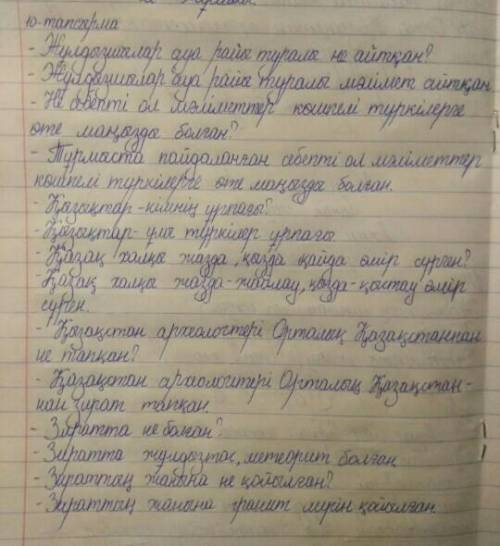 10-тапсырма
- Жұлдызшылар ауа райы туралы не айтқан?
- Жұлдызшылар ауа райы туралы мәлімет айтқан
- Не себепті ол мәліметтер көшпелі түркілерге
өте маңызды болған?
- Тұрмыста пайдаланған себепті ол мәліметтер
көшпелі түркілерге өте маңызды болған.
- Қазақтар - кімнің ұрпағы?
- Қазақтар - ұлы түркілер ұрпағы
- Қазақ халқы жазда, қызда қайда өмір сүрген?
- Қазақ халқы жазда - жайлау, қызда - қыстау өмір
сүрген.
- Қазақстан археологтері Орталық Қазақстаннан
не тапқан?
- Қазақстан археологтері Орталық Қазақстан-
нан зират тапқан.
- Зиратта не болған?
- Зиратта жұлдызтас, метеорит болған
- Зираттың жанына не қойылған?
- Зираттың жанына гранит қойылған